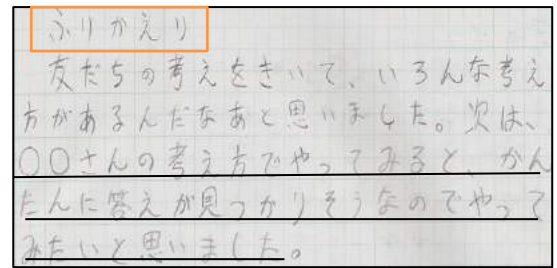 ふりかえり
友だちの考えをきいて、いろんな考え
方があるんだなあと思いました。次は、
〇〇さんの考え方でやってみると、かん
たんに答えが見つかりそうなのでやって
みたいと思いました。